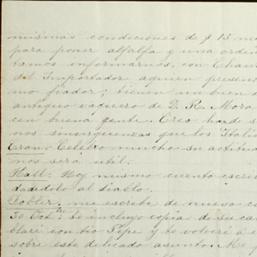 mismas condiciones de $ 15 me
para poner alfalfa y una orden
tamos informarnos, con Cham
del Importador aquien present
mo fiador; tienen un buen
antiguo vaquero de D. R. Mora
cen buena gente. Creo ha de s
nos sinverguenzas que los Itali
Erano Celebro mucho su actitud
nos será util.
Hall: Hoy mismo cuento escri
dadidolo al diablo.
Tobler. me escribe de nuevo c
te incluyo copia de su ca
blaré con tio Pepe y te volveré á
sobre este delicado asunto. Me